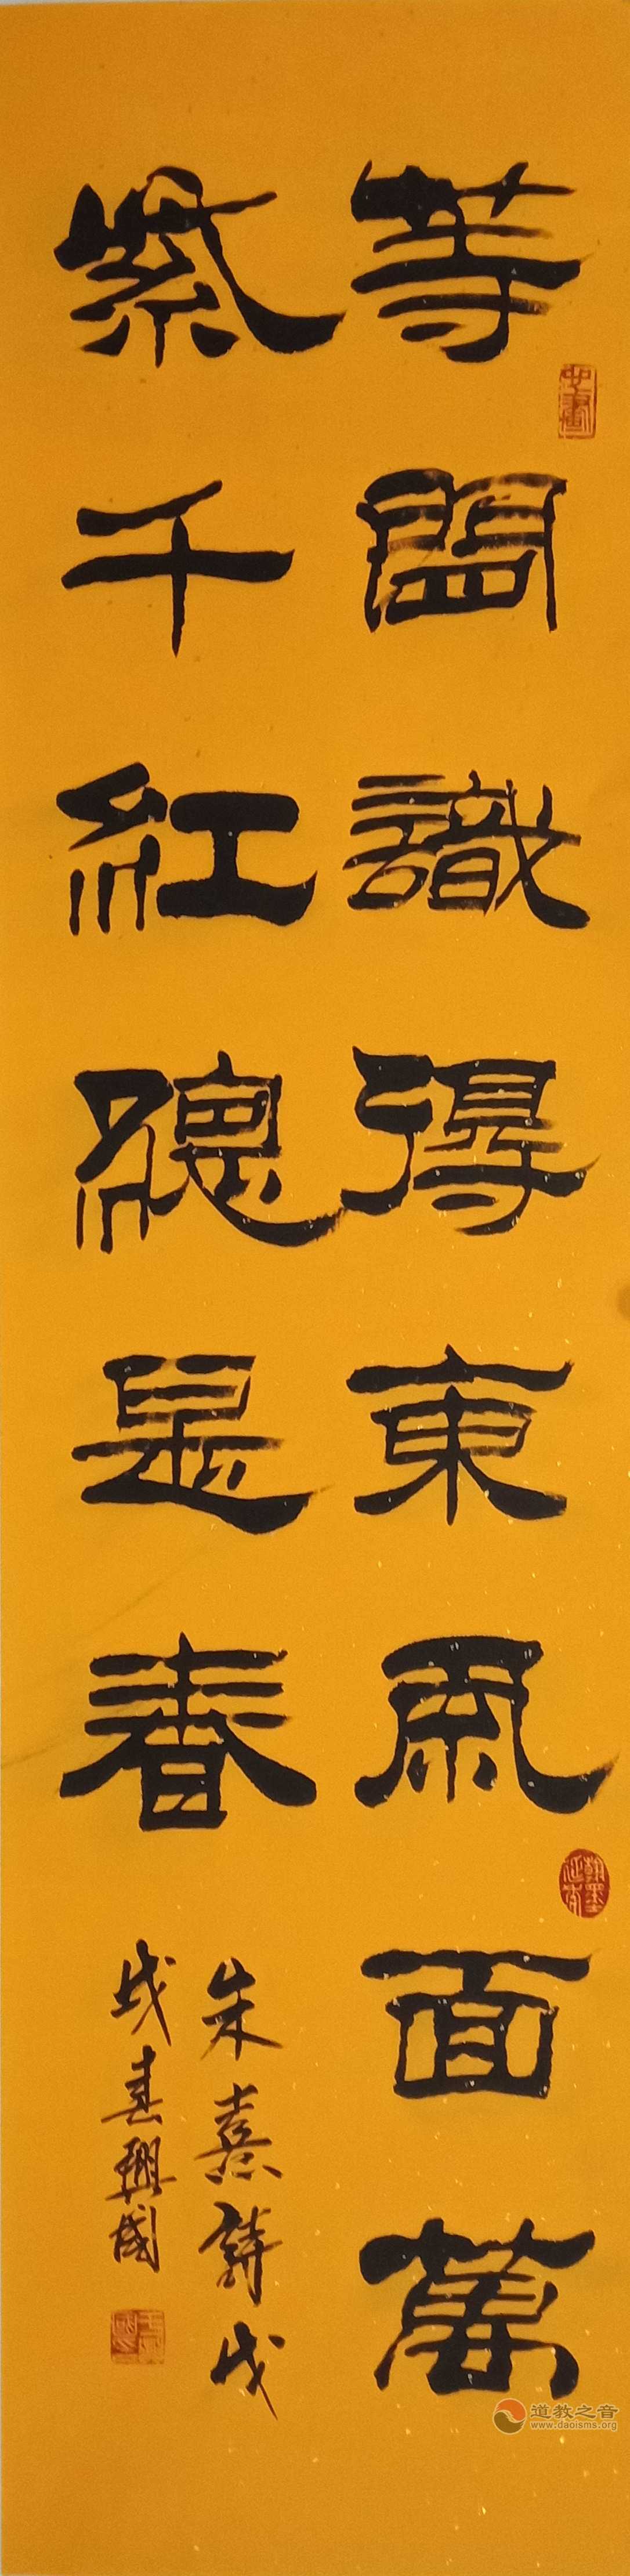 等閒識得東風面萬
紫千紅總是春
朱熹詩戊
戌春興國
翰墨
道教之音
www.daoisms.org